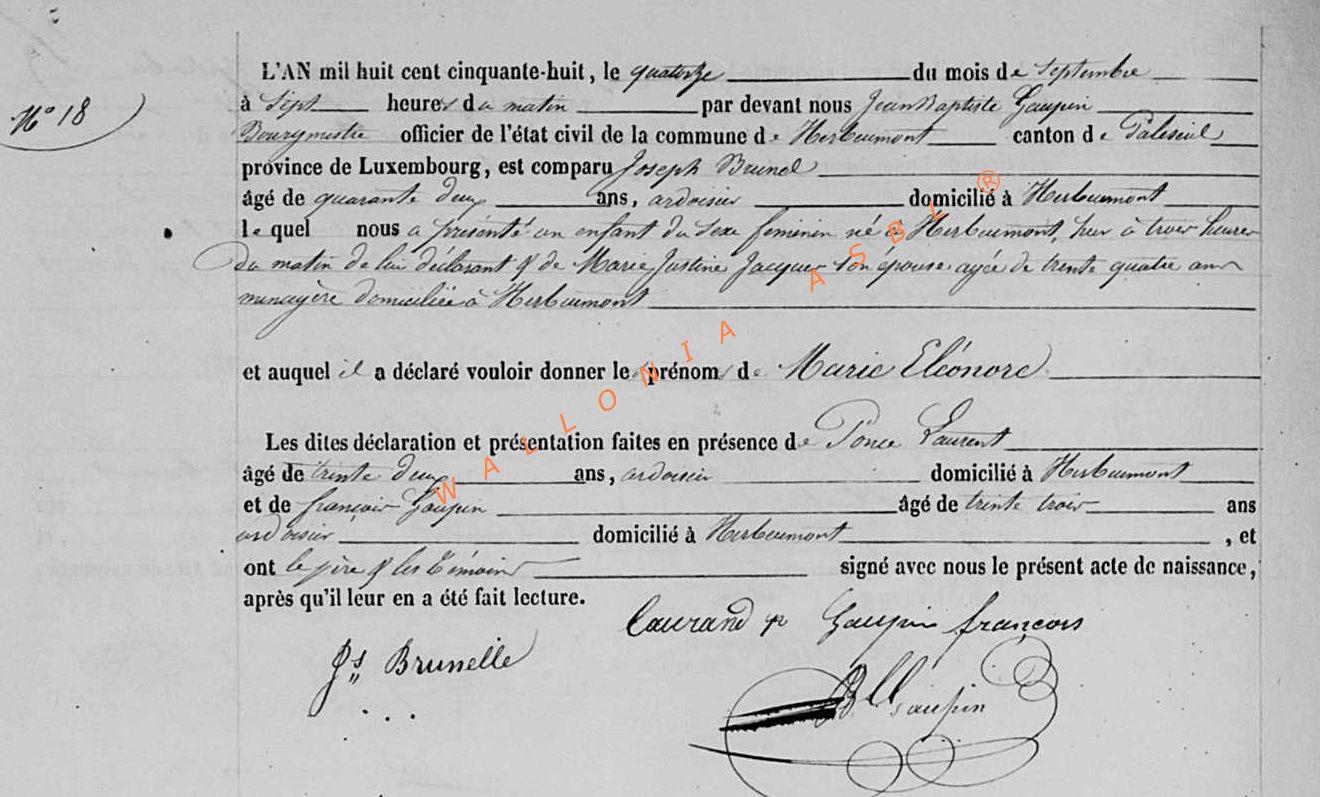 N° 18
L'AN mil huit cent cinquante-huit, le quatorze du mois de septembre
à sept heures du matin par devant nous Jean Baptiste Gaupin
Bourgmestre officier de l'état civil de la commune de Herbeumont canton de Paliseul
province de Luxembourg, est comparu Joseph Brunel
âgé de quarante deux ans, ardoisier domicilié à Herbeumont
le quel nous a présenté un enfant du sexe féminin né à Herbeumont, hier à trois heures
du matin de lui déclarant & de Marie Justine Jacques son épouse agée de trente quatre ans
menagère domiciliée à Herbeumont
et auquel il a déclaré vouloir donner les prénoms de Marie Eléonore
Les dites déclaration et présentation faites en présence de Ponce Laurent
âgé de trente deux ans, ardoisier domicilié à Herbeumont
et de françois Gaupin âgé de trente trois ans
ardoisier domicilié à Herbeumont , et
ont le père & les témoins signé avec nous le présent acte de naissance,
après qu'il leur en a été fait lecture.
Laurand Gaupin françois
Js Brunelle
Gaupin
WALLONIA ASBL ®